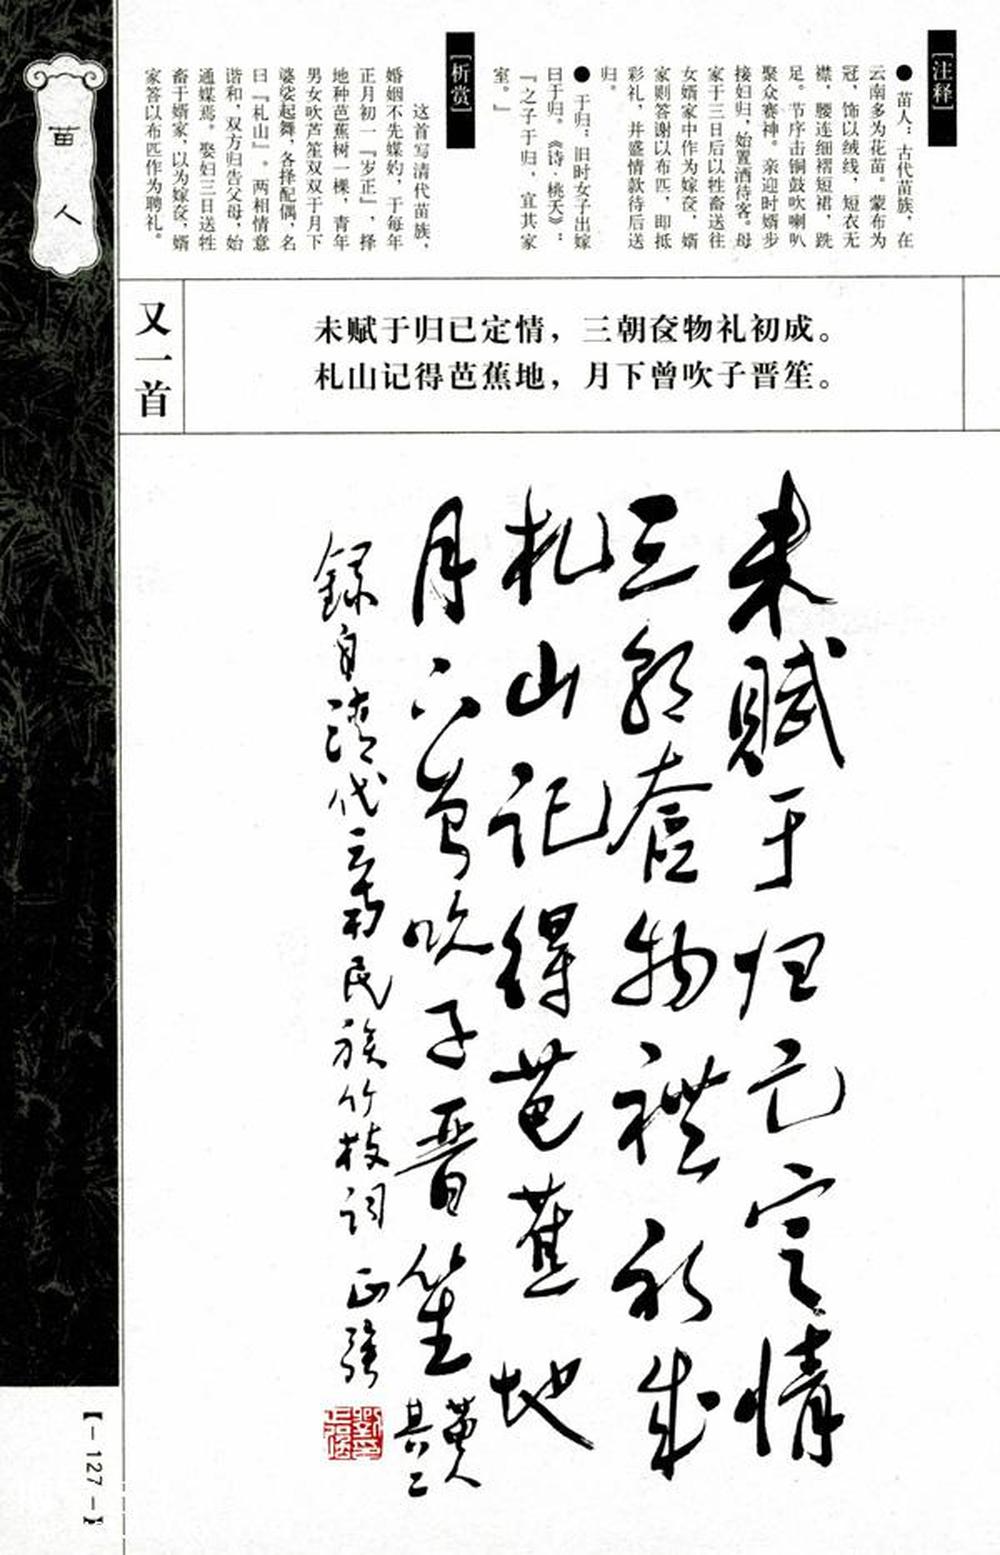 苗人
[注释]
●苗人：古代苗族，在
云南多为花苗。蒙布为
冠，饰以绒线，短衣无
襟，腰连细褶短裙，跣
足。节序击铜鼓吹喇叭
聚众赛神。亲迎时婿步
接妇归，始置酒待客。母
家于三日后以牲畜送往
女婿家中作为嫁奁，婿
家则答谢以布匹，即抵
彩礼，并盛情款待后送
归。
●于归：旧时女子出嫁
曰于归。《诗·桃夭》：
『之子于归，宜其家
室。』
[析赏]
这首写清代苗族，
婚姻不先媒妁，于每年
正月初一『岁正』，择
地种芭蕉树一棵，青年
男女吹芦笙双双于月下
婆娑起舞，各择配偶，名
曰『札山』。两相情意
谐和，双方归告父母，始
通媒焉。娶妇三日送牲
畜于婿家，以为嫁奁，婿
家答以布匹作为聘礼。
又一首
未赋于归已定情，三朝奁物礼初成。
札山记得芭蕉地，月下曾吹子晋笙。
未赋于归已定情
三朝奁物禮初成
札山记得芭蕉地
月下曾吹子晋笙
苗人
其二
录自清代云南民族竹枝词 正强
【—127—】